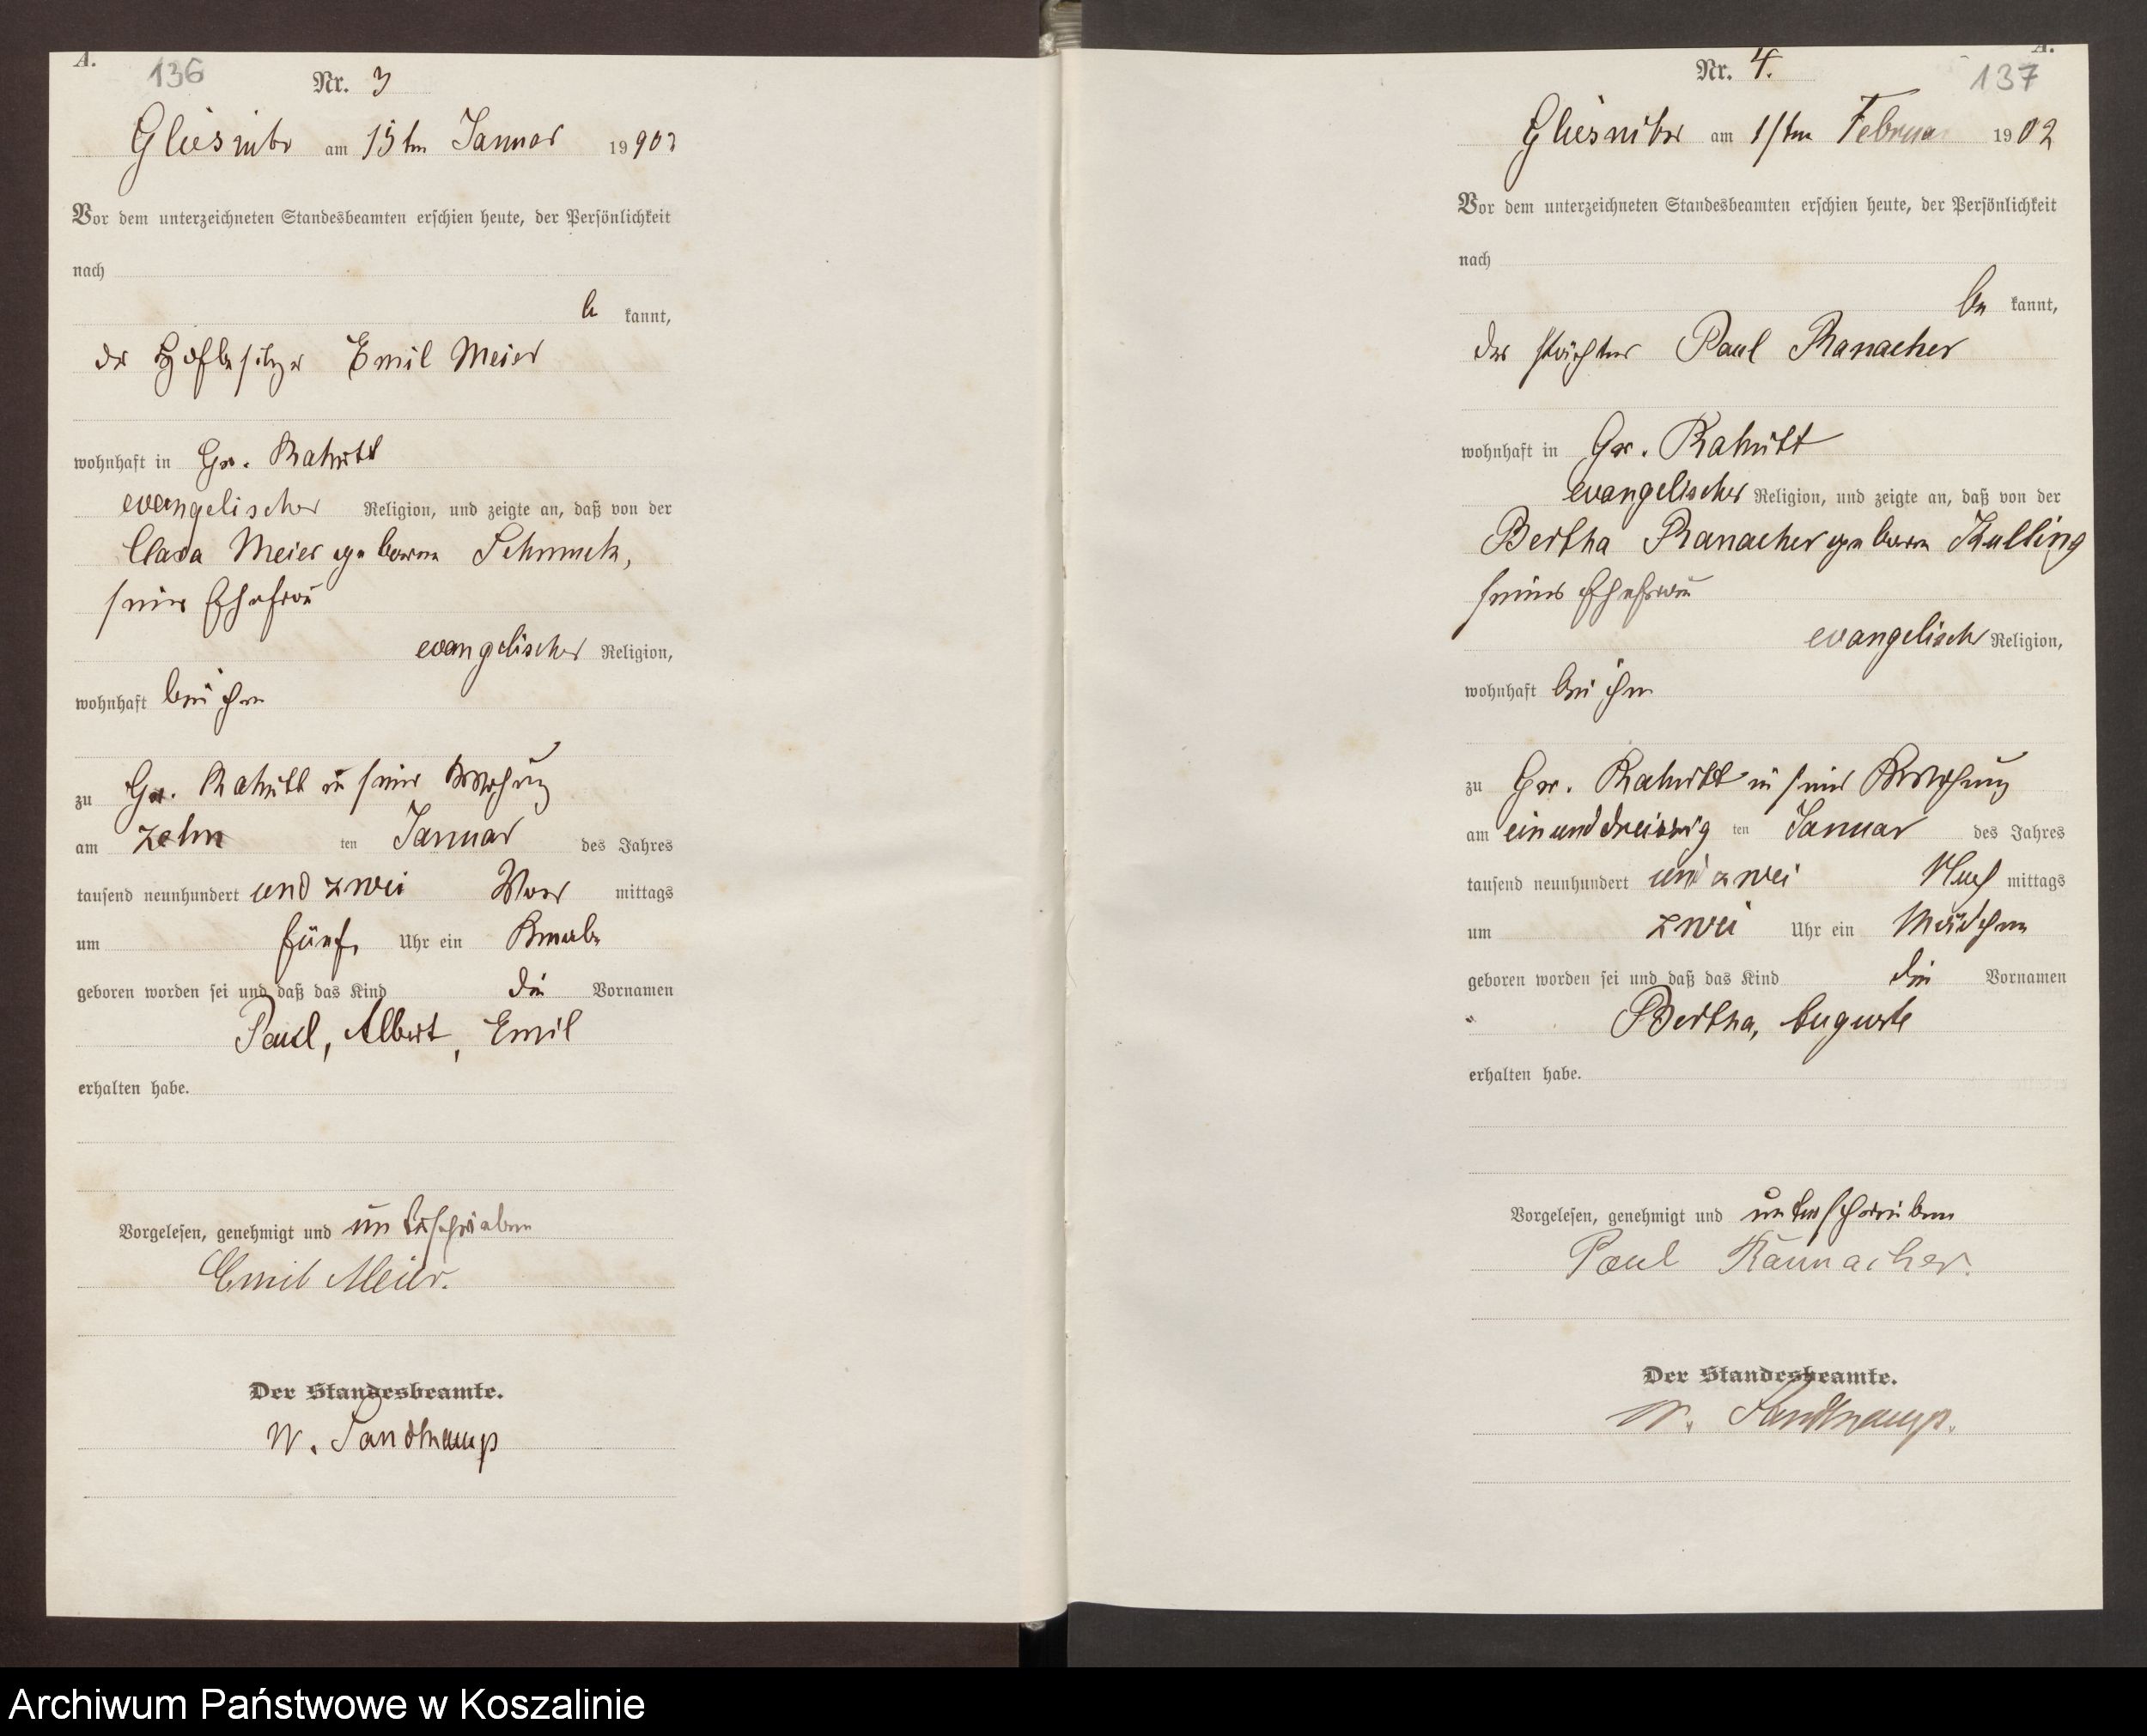 A.
136
Nr. 3
Gliesnitz am 15ten Januar 1902
Vor dem unterzeichneten Standesbeamten erschien heute, der Persönlichkeit
nach
be kannt,
der Hofbesitzer Emil Meier
wohnhaft in Gr. Rakitt
evangelischer Religion, und zeigte an, daß von der
Clara Meier geborne Schmuck,
seiner Ehefrau
evangelischer Religion,
wohnhaft bei ihm
zu Gr. Rakitt in seiner Wohnung
am zehn ten Januar des Jahres
tausend neunhundert und zwei Vor mittags
um fünf Uhr ein Knabe
geboren worden sei und daß das Kind die Vornamen
Paul, Albert, Emil
erhalten habe.
Vorgelesen, genehmigt und unterschrieben
Emil Meier.
Der Standesbeamte.
W. Sandkamp
A.
137
Nr. 4.
Gliesnitz am 1ten Februar 1902
Vor dem unterzeichneten Standesbeamten erschien heute, der Persönlichkeit
nach
be kannt,
der Pächter Paul Ranacher
wohnhaft in Gr. Rakitt
evangelischer Religion, und zeigte an, daß von der
Bertha Ranacher geborne Kulling
seiner Ehefrau
evangelischer Religion,
wohnhaft bei ihm
zu Gr. Rakitt in seiner Wohnung
am einunddreissig ten Januar des Jahres
tausend neunhundert und zwei Nach mittags
um zwei Uhr ein Mädchen
geboren worden sei und daß das Kind die Vornamen
Bertha, Auguste
erhalten habe.
Vorgelesen, genehmigt und unterschrieben
Paul Rannacher.
Der Standesbeamte.
W. Sandkamp.
Archiwum Państwowe w Koszalinie